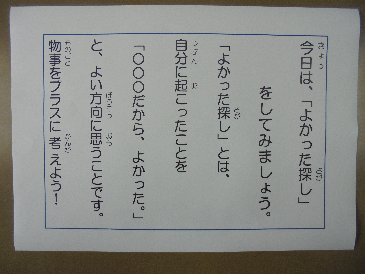 今日は、「よかった探し」
をしてみましょう。
「よかった探し」とは、
自分に起こったことを
「○○○だから、よかった。」
と、よい方向に思うことです。
物事をプラスに考えよう！